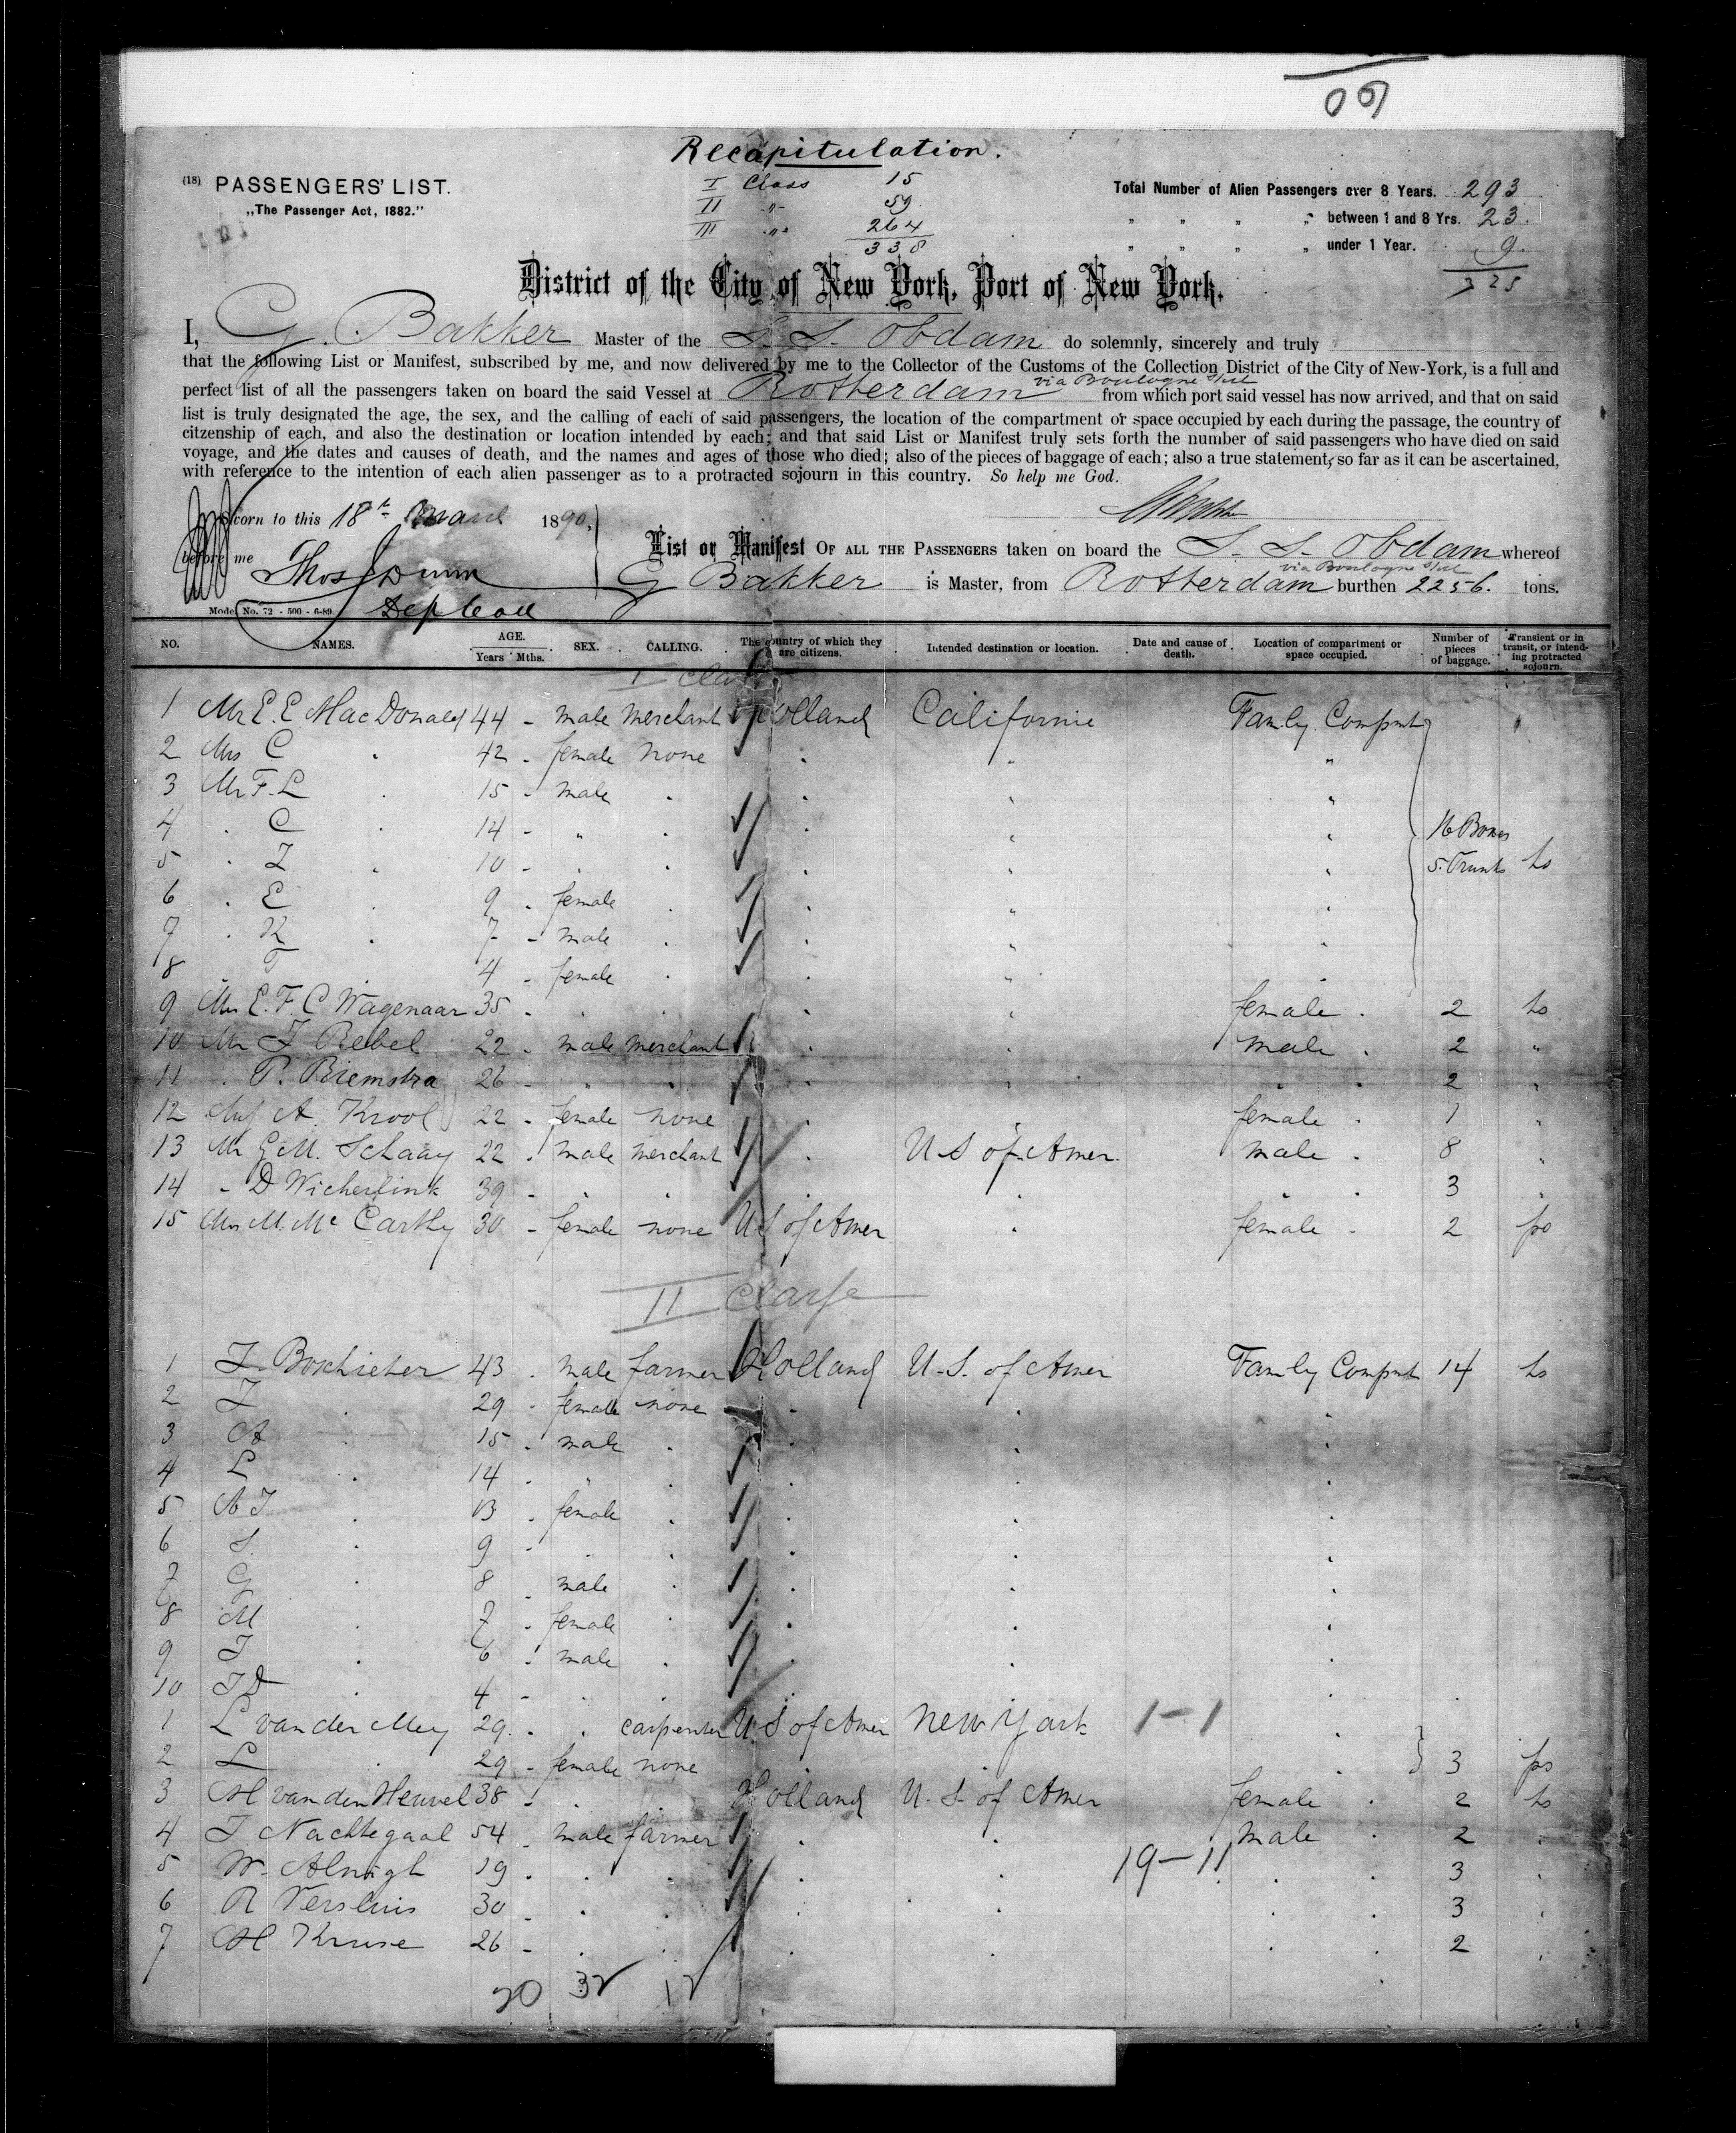 60
Recapitulation.
(18) PASSENGERS' LIST.
„The Passenger Act, 1882."
I Class 15
II -"- 59
III -"- 264
338
Total Number of Alien Passengers over 8 Years. 293
„ „ „ „ between 1 and 8 Yrs. 23.
„ „ „ „ under 1 Year. 9.
325
District of the City of New York, Port of New York.
I, G. Bakker Master of the S. S. Obdam do solemnly, sincerely and truly
that the following List or Manifest, subscribed by me, and now delivered by me to the Collector of the Customs of the Collection District of the City of New-York, is a full and
perfect list of all the passengers taken on board the said Vessel at Rotterdam via Boulogne s/m from which port said vessel has now arrived, and that on said
list is truly designated the age, the sex, and the calling of each of said passengers, the location of the compartment or space occupied by each during the passage, the country of
citzenship of each, and also the destination or location intended by each; and that said List or Manifest truly sets forth the number of said passengers who have died on said
voyage, and the dates and causes of death, and the names and ages of those who died; also of the pieces of baggage of each; also a true statement, so far as it can be ascertained,
with reference to the intention of each alien passenger as to a protracted sojourn in this country. So help me God.
Sworn to this 18th March 1890,
before me
List or Manifest OF ALL THE PASSENGERS taken on board the S. S. Obdam whereof
G Bakker is Master, from Rotterdam via Boulogne s/m burthen 2256. tons.
Model No. 72 - 500 - 6-89.
NO. NAMES. AGE. Years Mths. SEX. CALLING. The country of which they are citizens. Intended destination or location. Date and cause of death. Location of compartment or space occupied. Number of pieces of baggage. Transient or in transit, or intending protracted sojourn.
I Class
1 Mr E. E MacDonald 44 - male merchant Holland Californie Family Compmt "
2 Mrs C " 42 - female none " " "
3 Mr F. L " 15 - male " " " "
4 " C " 14 - " " " " " 16 Boxes
5 " I " 10 - " " " " " 5 Trunks ts
6 " E " 9 - female " " " "
7 " K " 7 - male " " " "
8 " T " 4 - female " " " "
9 Mrs E. F. C Wagenaar 35 - " " " " female " 2 ts
10 Mr J Rebel 22 - male merchant " " male " 2 "
11 " P. Riemstra 26 - " " " " " " 2 "
12 A. Krool 22 - female none " " female " 1 "
13 Mr G. M. Schaay 22 - male merchant " U S of Amer. male " 8 "
14 " D Wicherlink 39 - " " " " " " 3 "
15 Mrs M. Mc Carthy 30 - female none U.S of Amer " female " 2 ps
II Classe
1 J. Boschieter 43 - male farmer Holland U. S. of Amer Family Compmt 14 ts
2 J " 29 - female none " " "
3 A " 15 - male " " " "
4 L " 14 - " " " " "
5 A J " 13 - female " " " "
6 S. " 9 - " " " " "
7 G " 8 - male " " " "
8 M " 7 - female " " " "
9 J " 6 - male " " " "
10 J D " 4 - " " " " "
1 L van der Mey 29 - " carpenter U S of Amer New York 1-1 "
2 L " 29 - female none " 3 ps
3 H van den Heuvel 38 - " " Holland U. S. of Amer female " 2 ts
4 J Nachtegaal 54 - male farmer " " male " 2 "
5 W. 19 - " " " " 19-11 " " 3 "
6 R Versluis 30 - " " " " " " 3 "
7 H Kruse 26 - " " " " " " 2 "
20 32 12